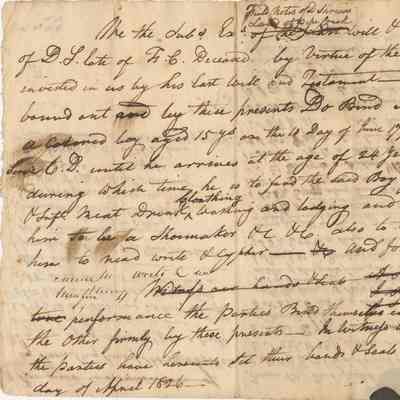 Field Notes of Survey
Land at
We the Subs Exs of will &
of D. S. late of F. C. Deceased by Virtue of the
invested in us by his last will and Testament
bound out and by these presents Do Bind
a Colored boy aged 15 ys on the 10 Day of June
C. D. until he arrives at the age of 24 Years
during which time he is to find the said Boy
cloathing
& Suft Meat Drink Washing and lodging and
him to be a Shoemaker &c &c also to
him to read write & Cypher — &c and
write
Witness our hands & Seals
performance the Parties Bind themselves
the Other firmly by these presents — In witness
the parties have hereunto Set their hands & Seals
day of April 1826